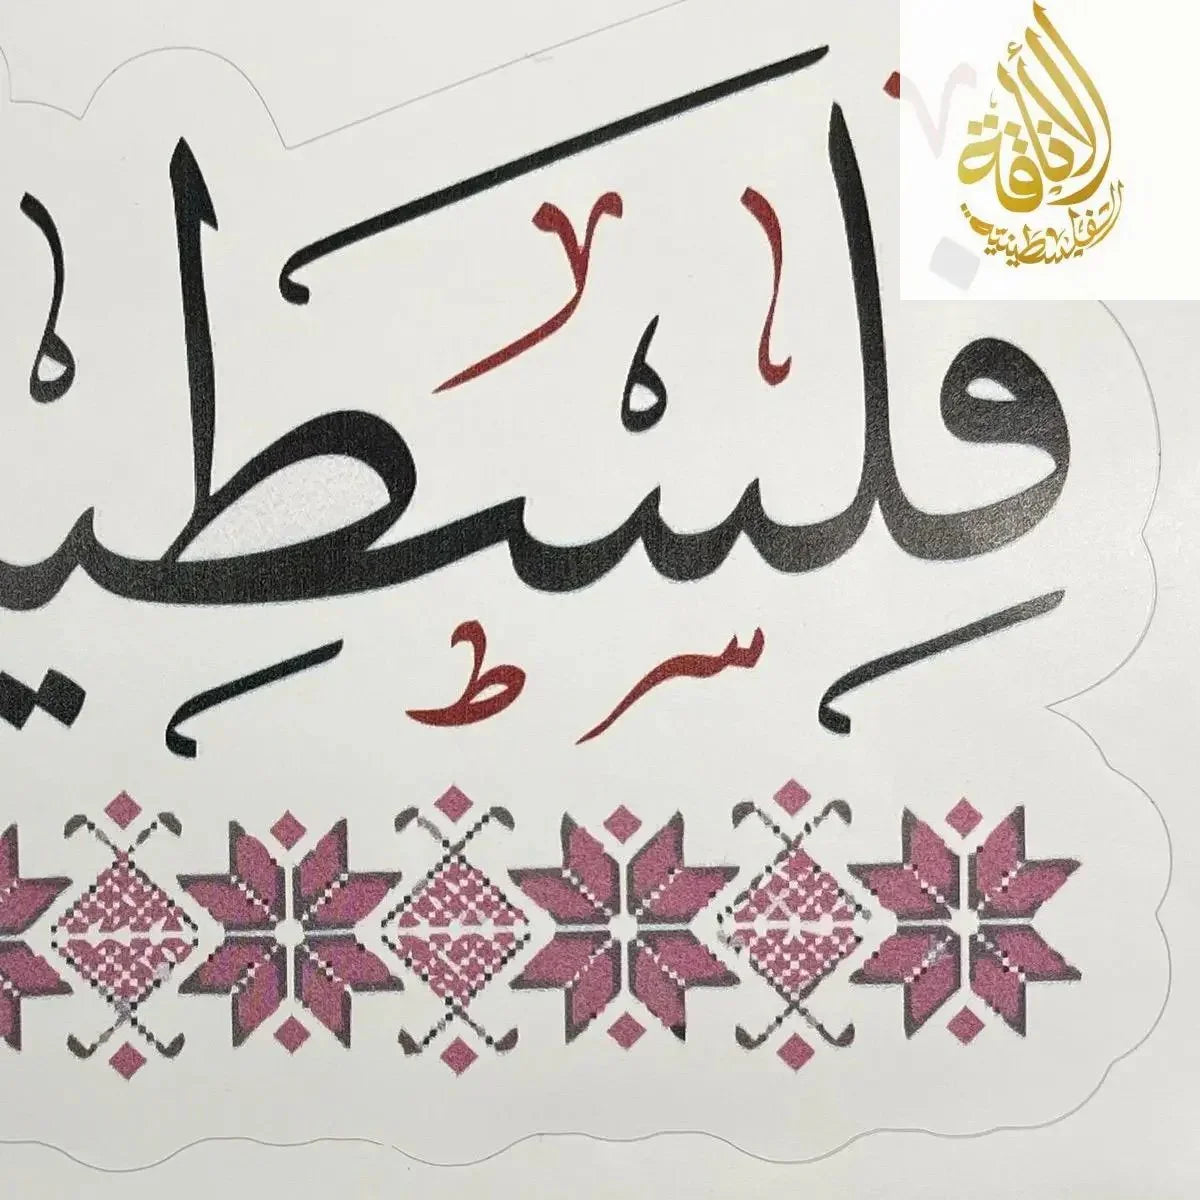 الأناقة
الفلسطينية
فلسطي